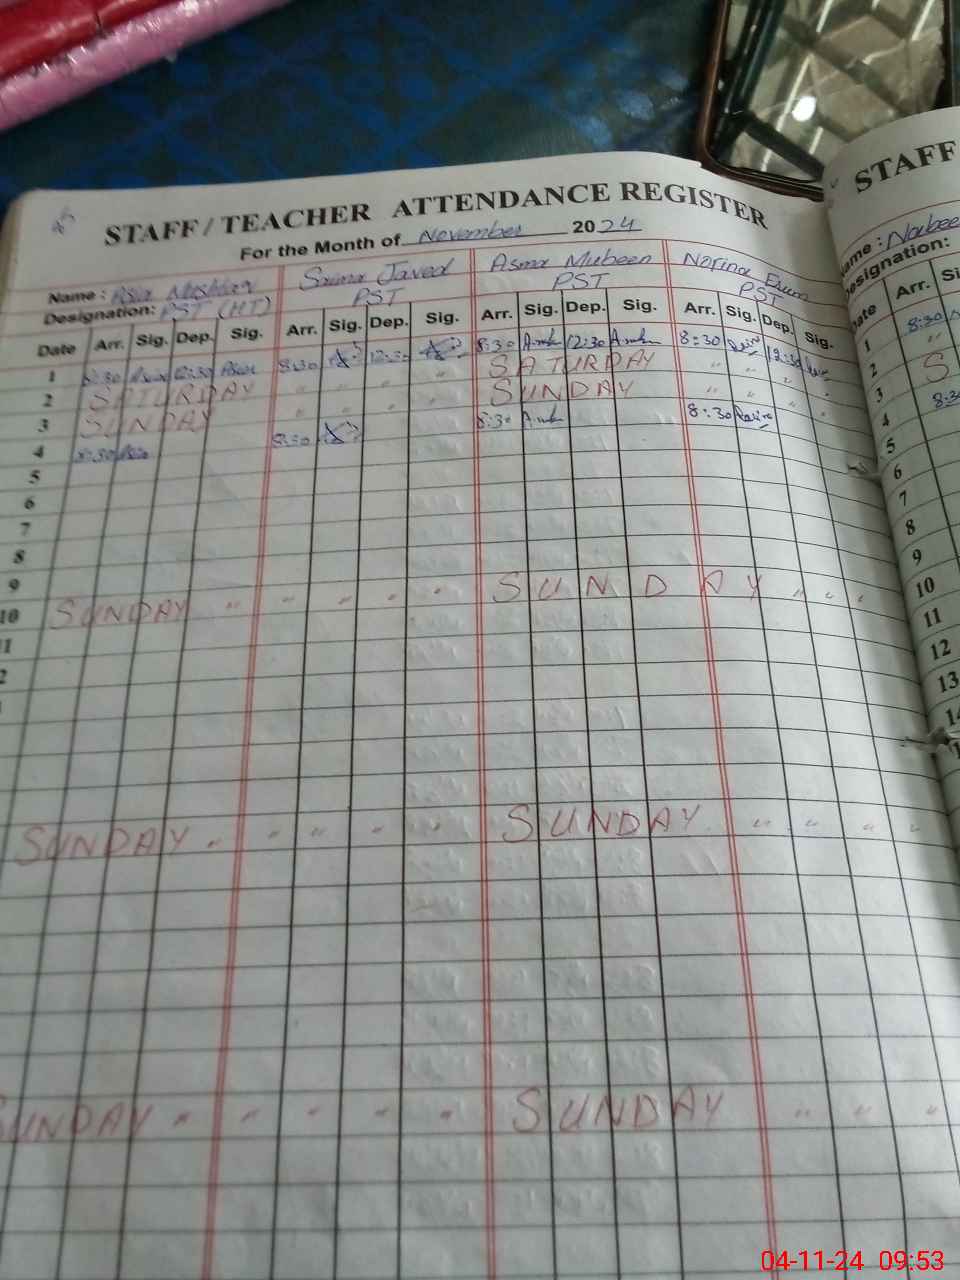 STAFF / TEACHER ATTENDANCE REGISTER
For the Month of November 2024
Name : Asia Mushtaq Saima Javed Asma Mubeen Narina Erum
Designation: PST (HT) PST PST PST
Date Arr. Sig. Dep. Sig. Arr. Sig. Dep. Sig. Arr. Sig. Dep. Sig. Arr. Sig. Dep. Sig.
1 8:30 12:30 8:30 12:30 8:30 12:30 8:30 12:30
2 SATURDAY " " " " SATURDAY " " " "
3 SUNDAY " " " " SUNDAY " " " "
4 8:30 8:30 8:30 8:30
5
6
7
8
9
10 SUNDAY " " " " " SUNDAY " " "
11
2
SUNDAY " " " " " SUNDAY " " " "
SUNDAY " " " " " SUNDAY " " "
STAFF
ame :
Designation:
Date Arr.
1 8:30
2 S
3
4
5
6
7
8
9
10
11
12
13
04-11-24 09:53